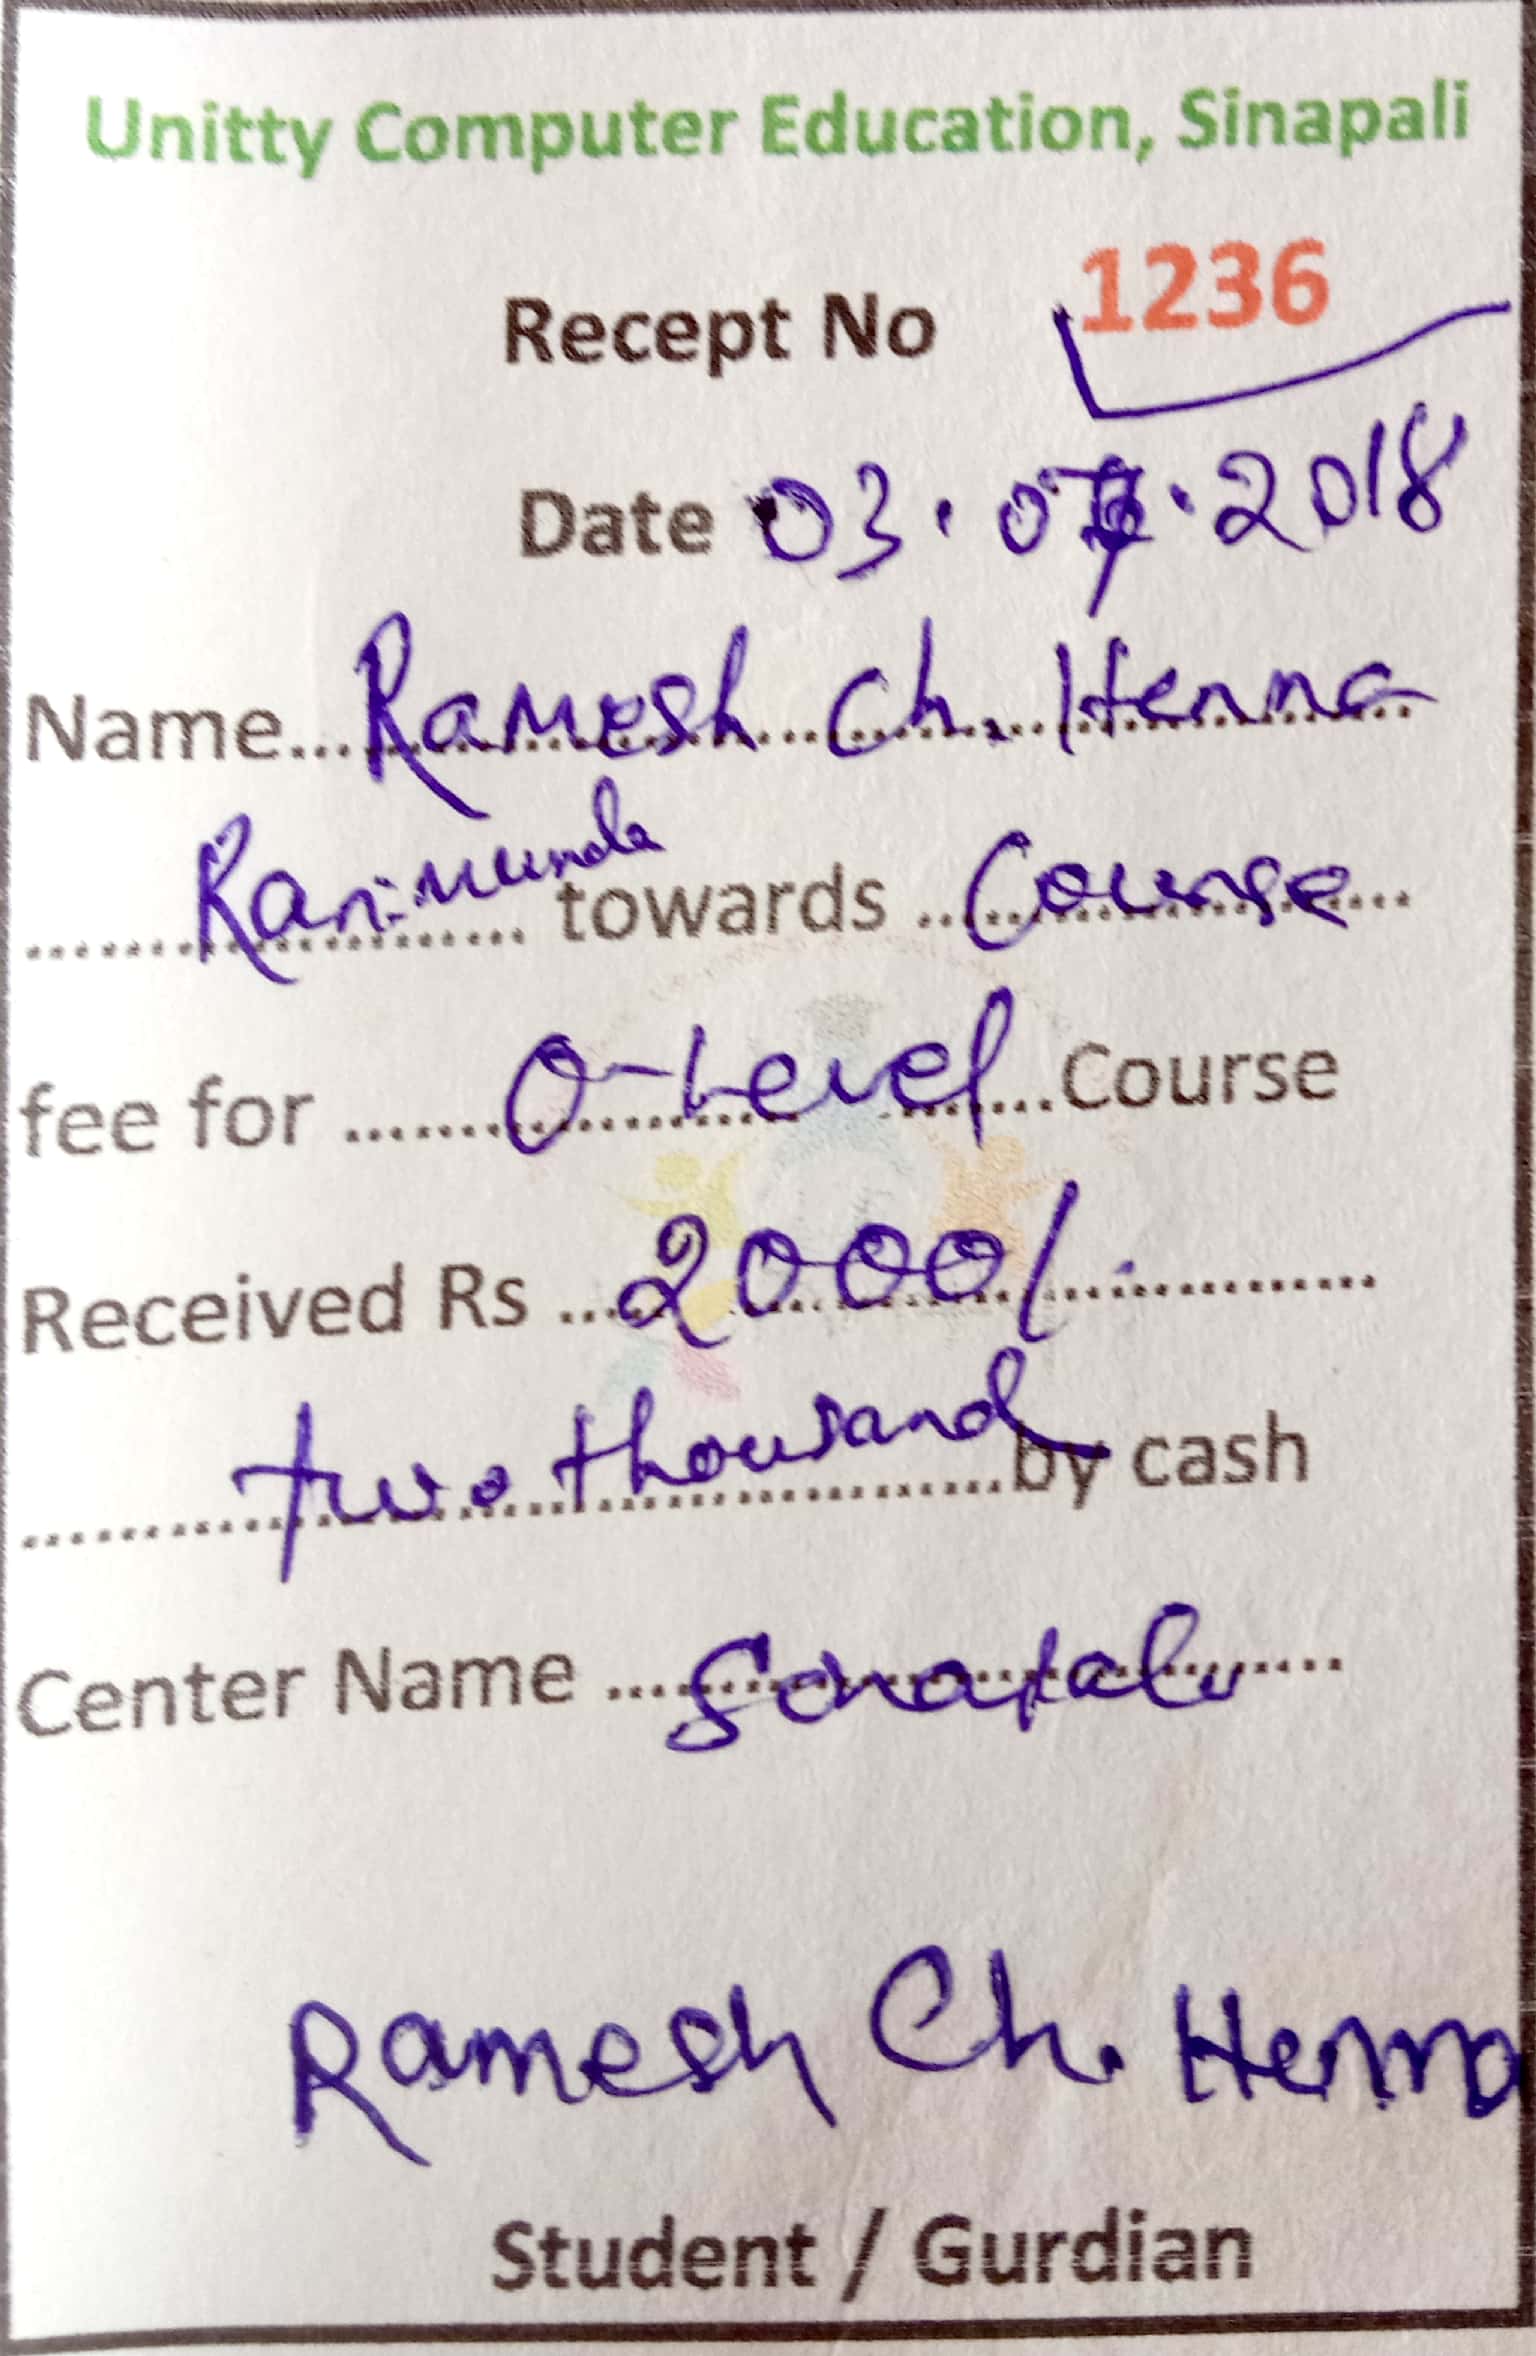 Unitty Computer Education, Sinapali
Recept No 1236
Date 03.07.2018
Name... Ramesh Ch. Henna
Ranimunda towards ... Course
fee for ... O-Level ... Course
Received Rs ... 2000/-
two thousand by cash
Center Name ... Sinapali
Ramesh Ch. Henna
Student / Gurdian